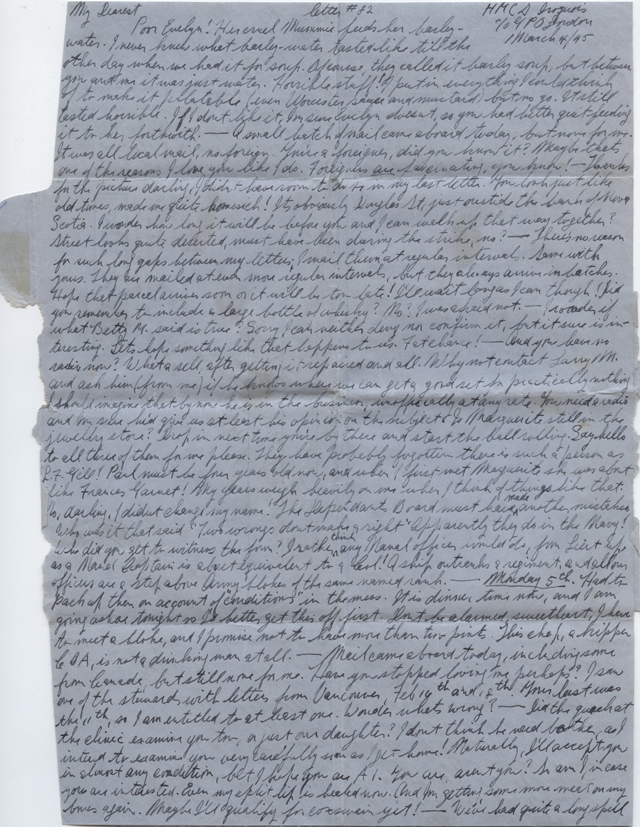 My Dearest letter #32 HMCS Iroquois
c/o G P O London
Poor Evelyn! Her cruel Mummie feeds her barley- 1 March 4/45
water. I never knew what barley-water tasted like till the
other day when we had it for soup. Of course, they called it barley soup, but between
you and me it was just water. Horrible stuff! I put in everything I could think
of to make it palatable (even Worcester Sauce and mustard) but no go. It still
tasted horrible. If I don't like it, I'm sure Evelyn doesn't, so you had better quit feeding
it to her forthwith. — A small batch of mail came aboard today, but none for me.
It was all local mail, no foreign. You're a foreigner, did you know it? Maybe that's
one of the reasons I love you like I do. Foreigners are fascinating, you know! — Thanks
for the picture darling, I didn't have room to do so in my last letter. You look just like
old times, made me quite homesick! It's obviously Douglas St, just outside the bank of Nova
Scotia. I wonder how long it will be before you and I can walk up that way together?
Street looks quite deserted, must have been during the strike, no? — There's no reason
for such long gaps between my letters; I mail them at regular intervals. Same with
yours. They are mailed at even more regular intervals, but they always arrive in batches.
Hope that parcel arrives soon or it will be too late! I'll wait long as I can though! Did
you remember to include a large bottle of whisky? No! I was afraid not. — I wonder if
what Betty M. said is true? Sorry I can neither deny nor confirm it, but it sure is in-
teresting. Let's hope something like that happens to us. Fat chance! — And you have no
radio now? What a sell, after getting it repaired and all. Why not contact Larry M.
and ask him (from me) if he knows where we can get a good set for practically nothing
I should imagine that by now he is in the business, unofficially at any rate. You need a radio
and I'm sure he'd give us at least his opinion on the subject. Is Marguerite still in the
jewelry store? Drop in next time you're by there and start the ball rolling. Say hello
to all three of them for me please. They have probably forgotten there is such a person as
L.F. Gill! Paul must be four years old now, and when I first met Marguerite she was about
like Frances Garnet! My years weigh heavily on me when I think of things like that.
No, darling, I didn't change my name! The Dependants Board must have made another mistake.
Who was it that said "Two wrongs don't make a right" Apparently they do in the Navy!
Who did you get to witness the form? I rather think any Naval officer would do, from Lieut up,
as a Naval Captain is about equivalent to a Col! A ship outranks a regiment, and all our
officers are a step above Army blokes of the same named rank. — Monday 5th. Had to
pack up then on account of "conditions" in the mess. It is dinner time now, and I am
going ashore tonight so I'd better get this off first. Don't be alarmed, sweetheart, I have
to meet a bloke, and I promise not to have more than two pints. This chap, a kipper
is not a drinking man at all. — Mail came aboard today, including some
from Canada, but still none for me. Have you stopped loving me perhaps? I saw
one of the stewards with letters from Vancouver, Feb 14th and Your last was
the 11th, so I am entitled to at least one. Wonder what's wrong? — Did the quack at
the clinic examine you too, or just our daughter? I don't think he need bother, as I
intend to examine you very carefully soon as I get home! Naturally, I'll accept you
in almost any condition, but I hope you are A1. You are, aren't you? So am I, in case
you are interested. Even my split lip is healed now. And I'm getting some more meat on my
bones again. Maybe I'll qualify for coxswain yet! — We've had quite a long spell